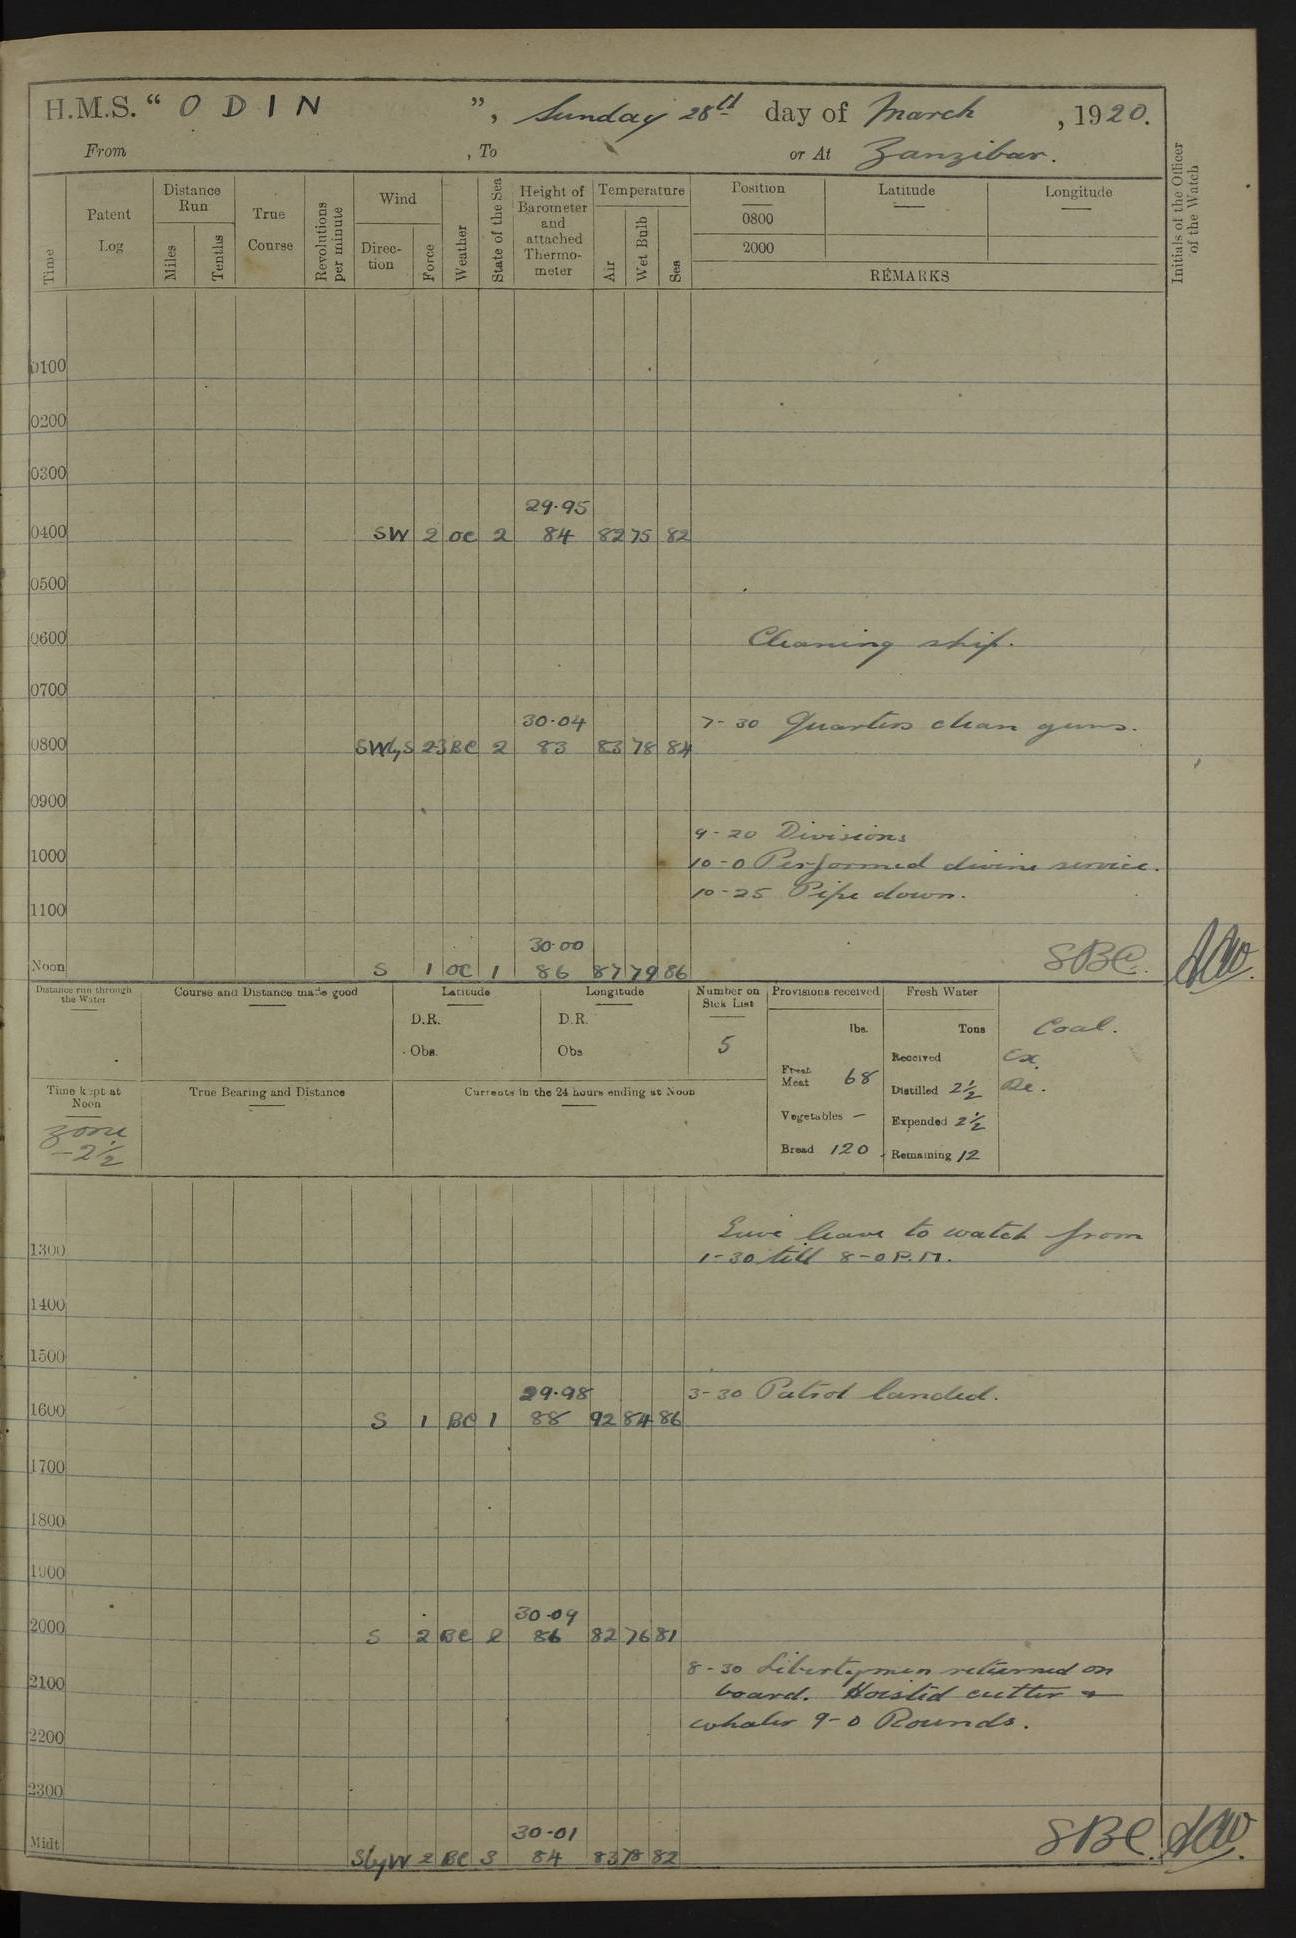 H.M.S. “ ODIN ”, Sunday 28th day of March , 1920.
From , To or At Zanzibar.
Time
Patent Log
Distance Run
Miles
Tenths
True Course
Revolutions per minute
Wind
Direction
Force
Weather
State of the Sea
Height of Barometer and attached Thermometer
Temperature
Air
Wet Bulb
Sea
Position
0800
2000
Latitude
Longitude
REMARKS
Initials of the Officer of the Watch
0100
0200
0300
29.95
0400 SW 2 OC 2 84 82 75 82
0500
0600 Cleaning ship.
0700
30.04 7-30 Quarters clean guns.
0800 SWbyS 2-3 BC 2 83 83 78 84
0900
9-20 Divisions
1000 10-0 Performed divine service.
10-25 Pipe down.
1100
30.00
Noon S 1 OC 1 86 87 79 86 SBC.
Distance run through the Water
Course and Distance made good
Latitude
D.R.
Obs.
Longitude
D.R.
Obs
Number on Sick List
5
Provisions received
lbs.
Fresh Meat 68
Vegetables —
Bread 120
Fresh Water
Tons
Received
Distilled 2½
Expended 2½
Remaining 12
Coal.
Ex.
Re.
Time kept at Noon
zone
-2½
True Bearing and Distance
Currents in the 24 hours ending at Noon
Give leave to watch from
1300 1-30 till 8-0 P.M.
1400
1500
29.98 3-30 Patrol landed.
1600 S 1 BC 1 88 92 84 86
1700
1800
1900
30.09
2000 S 2 BC 2 86 82 76 81
8-30 Libertymen returned on
2100 board. Hoisted cutter &
whaler 9-0 Rounds.
2200
2300
30.01
Midt SbyW 2 BC 3 84 83 78 82 SBC.